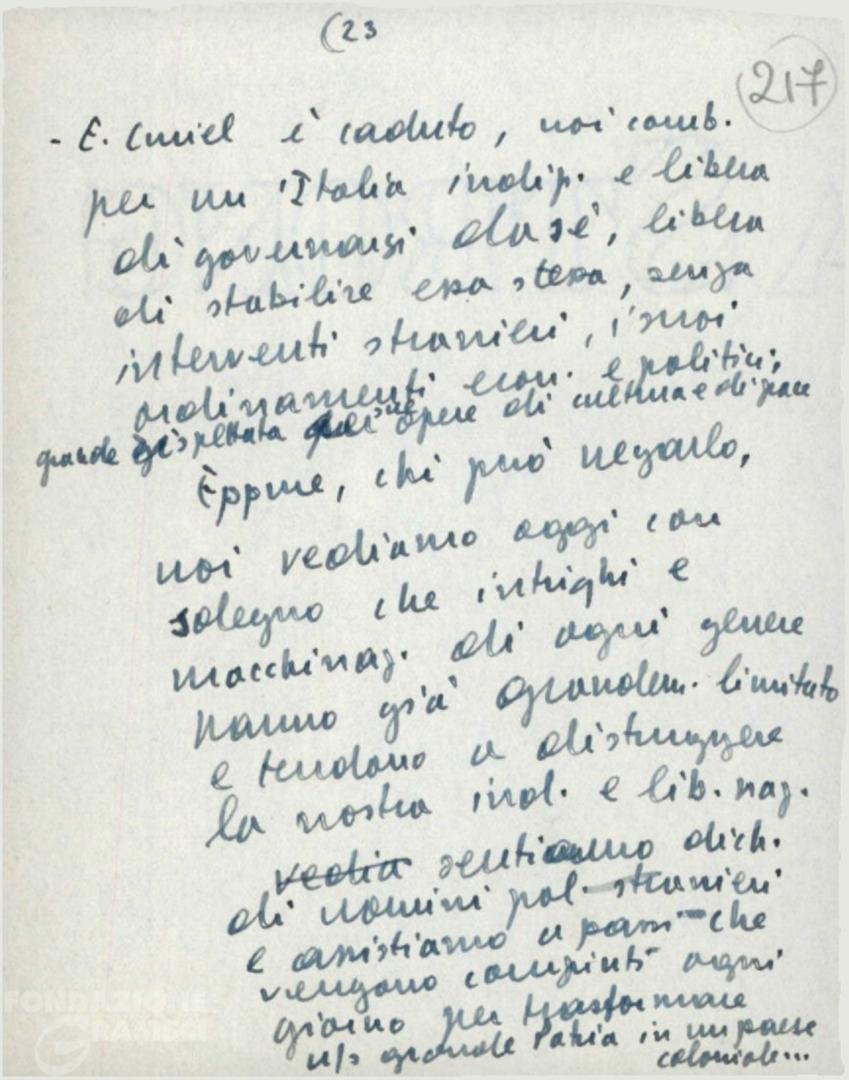 (23
217
- E. Curiel è caduto, noi comb.
per un 'Italia indip. e libera
di governarsi da sé, libera
di stabilire essa stessa, senza
interventi stranieri, i suoi
ordinamenti econ. e politici,
grande rispettata sue opere di cultura e di pace
Eppure, chi può negarlo,
noi vediamo oggi con
sdegno che intrighi e
macchinaz. di ogni genere
hanno già grandem. limitato
e tendono a distruggere
la nostra ind. e lib. naz.
vedia sentiamo dich.
di uomini pol. stranieri
e assistiamo a passi che
vengono compiuti ogni
giorno per trasformare
n/s grande Patria in un paese
coloniale...
FONDAZIONE
GRAMSCI